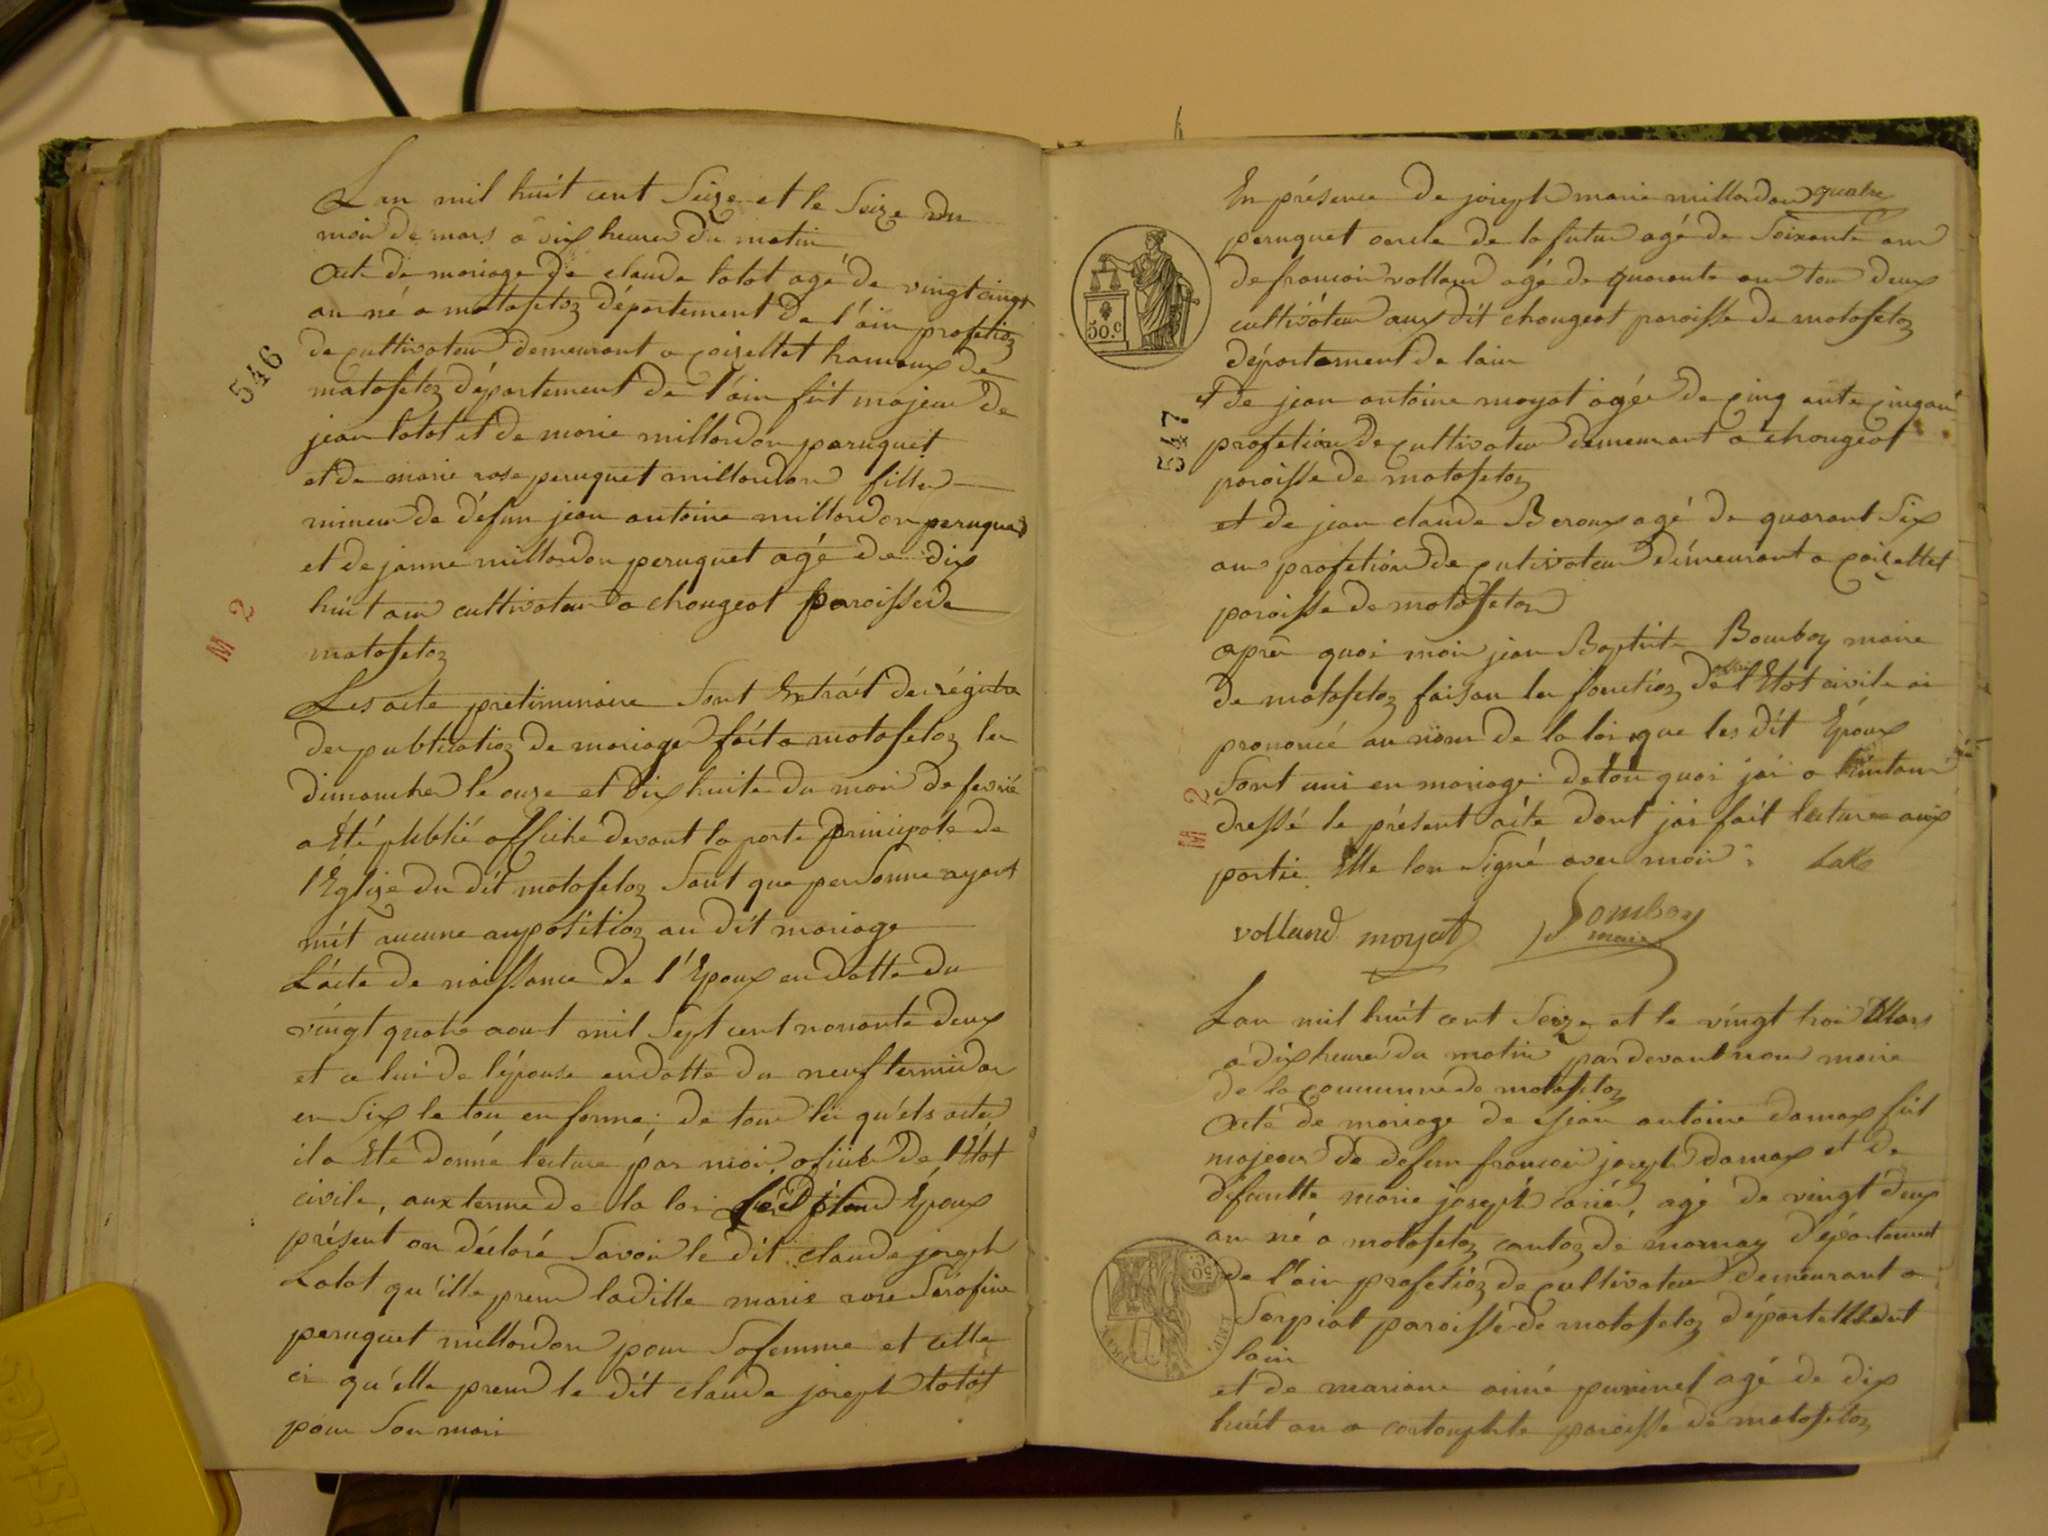 546
M 2
Lan mil huit cent Seize et le Seize du
moi de mars a dix heures du matin
acte de mariage de claude lotot agé de vingt cinq
an né a matafeloz département de l'ain profetioz
de cultivateur demeurant a coiseltet hameaux de
matafeloz département de l'ain fit majeur de
jean lotot et de marie millordon peruquet
et de marie rose peruquet millordon fille
mineur de défun jean antoine millordon peruquet
et de janne millordon peruquet agé de dix
huit an cultivateur a chougeat paroisse de
matafeloz
Les acte pretiminaire Sont Extrait des régistre
des publicatioz de mariage fait a matafeloz les
dimanches le onze et dix huite du moi de fevrié
a Eté publié affiché devant la porte principale de
l'Eglize du dit matafeloz Sant que personne ayant
mit aucune auposítioz au dit mariage
L'acte de naissance de l'Epoux en datte du
vingt quatre aout mil Sept cent nonante deux
et celui de l'épouse en datte du neuf termidor
en Six le tou en forme; de tou les qu'els acte
il a Eté donné lecture par moi, ofiié de l'Etat
civile, aux terme de la loi Epoux
présent on déclaré Savoir le dit claude joseph
Lalot qu'ille prend ladille marie rose Sérofine
peruquet millordon pour Sa femme et celle
ci qu'elle prend le dit claude joseph totot
pour Son mari
547
M 2
50.c
En présence de joseph marie millordon quatre
peruquet oncle de la futur agé de Soixante an
de francoi volland agé de quarante an tou deux
cultivateur aux dit chougeat paroisse de matafeloz
département de lain
et de jean antoine moyat agé de cinq ante cinq an
profetion de cultivateur demeurant a chougeat
paroisse de matafeloz
et de jean claude Beroux agé de quarant Six
an profetion de cutivateur demeurant a coiseltet
paroisse de matafelon
aprer quoi moi jean Baptiste Bomboy maire
de matafeloz faisan les fonctioz de l'Etat civile ai
prononcé au nom de la loi que les dit Epoux
Sont uni en mariage: de tou quoi jai a l'instant
dressé le présent acte dont jai fait lecture aux
partie. Elle lon Signé avec moi:
volland moyat Bomboy
maire
Lan mil huit cent Seize et le vingt troi Mars
a dix heures du matin par devant nou maire
de la commune de matafeloz
acte de mariage de jean antoine damax fil
majeur de defun francoi joseph damax et de
défuntte marie joseph carié, agé de vingt deux
an né a matafeloz cantoz de mornay département
de l'ain profetioz de cultivateur demeurant a
Sorpiat paroisse de matafeloz département
lain
et de mariane aimé puvinel agé de dix
huit an a contouphle paroisse de matafeloz